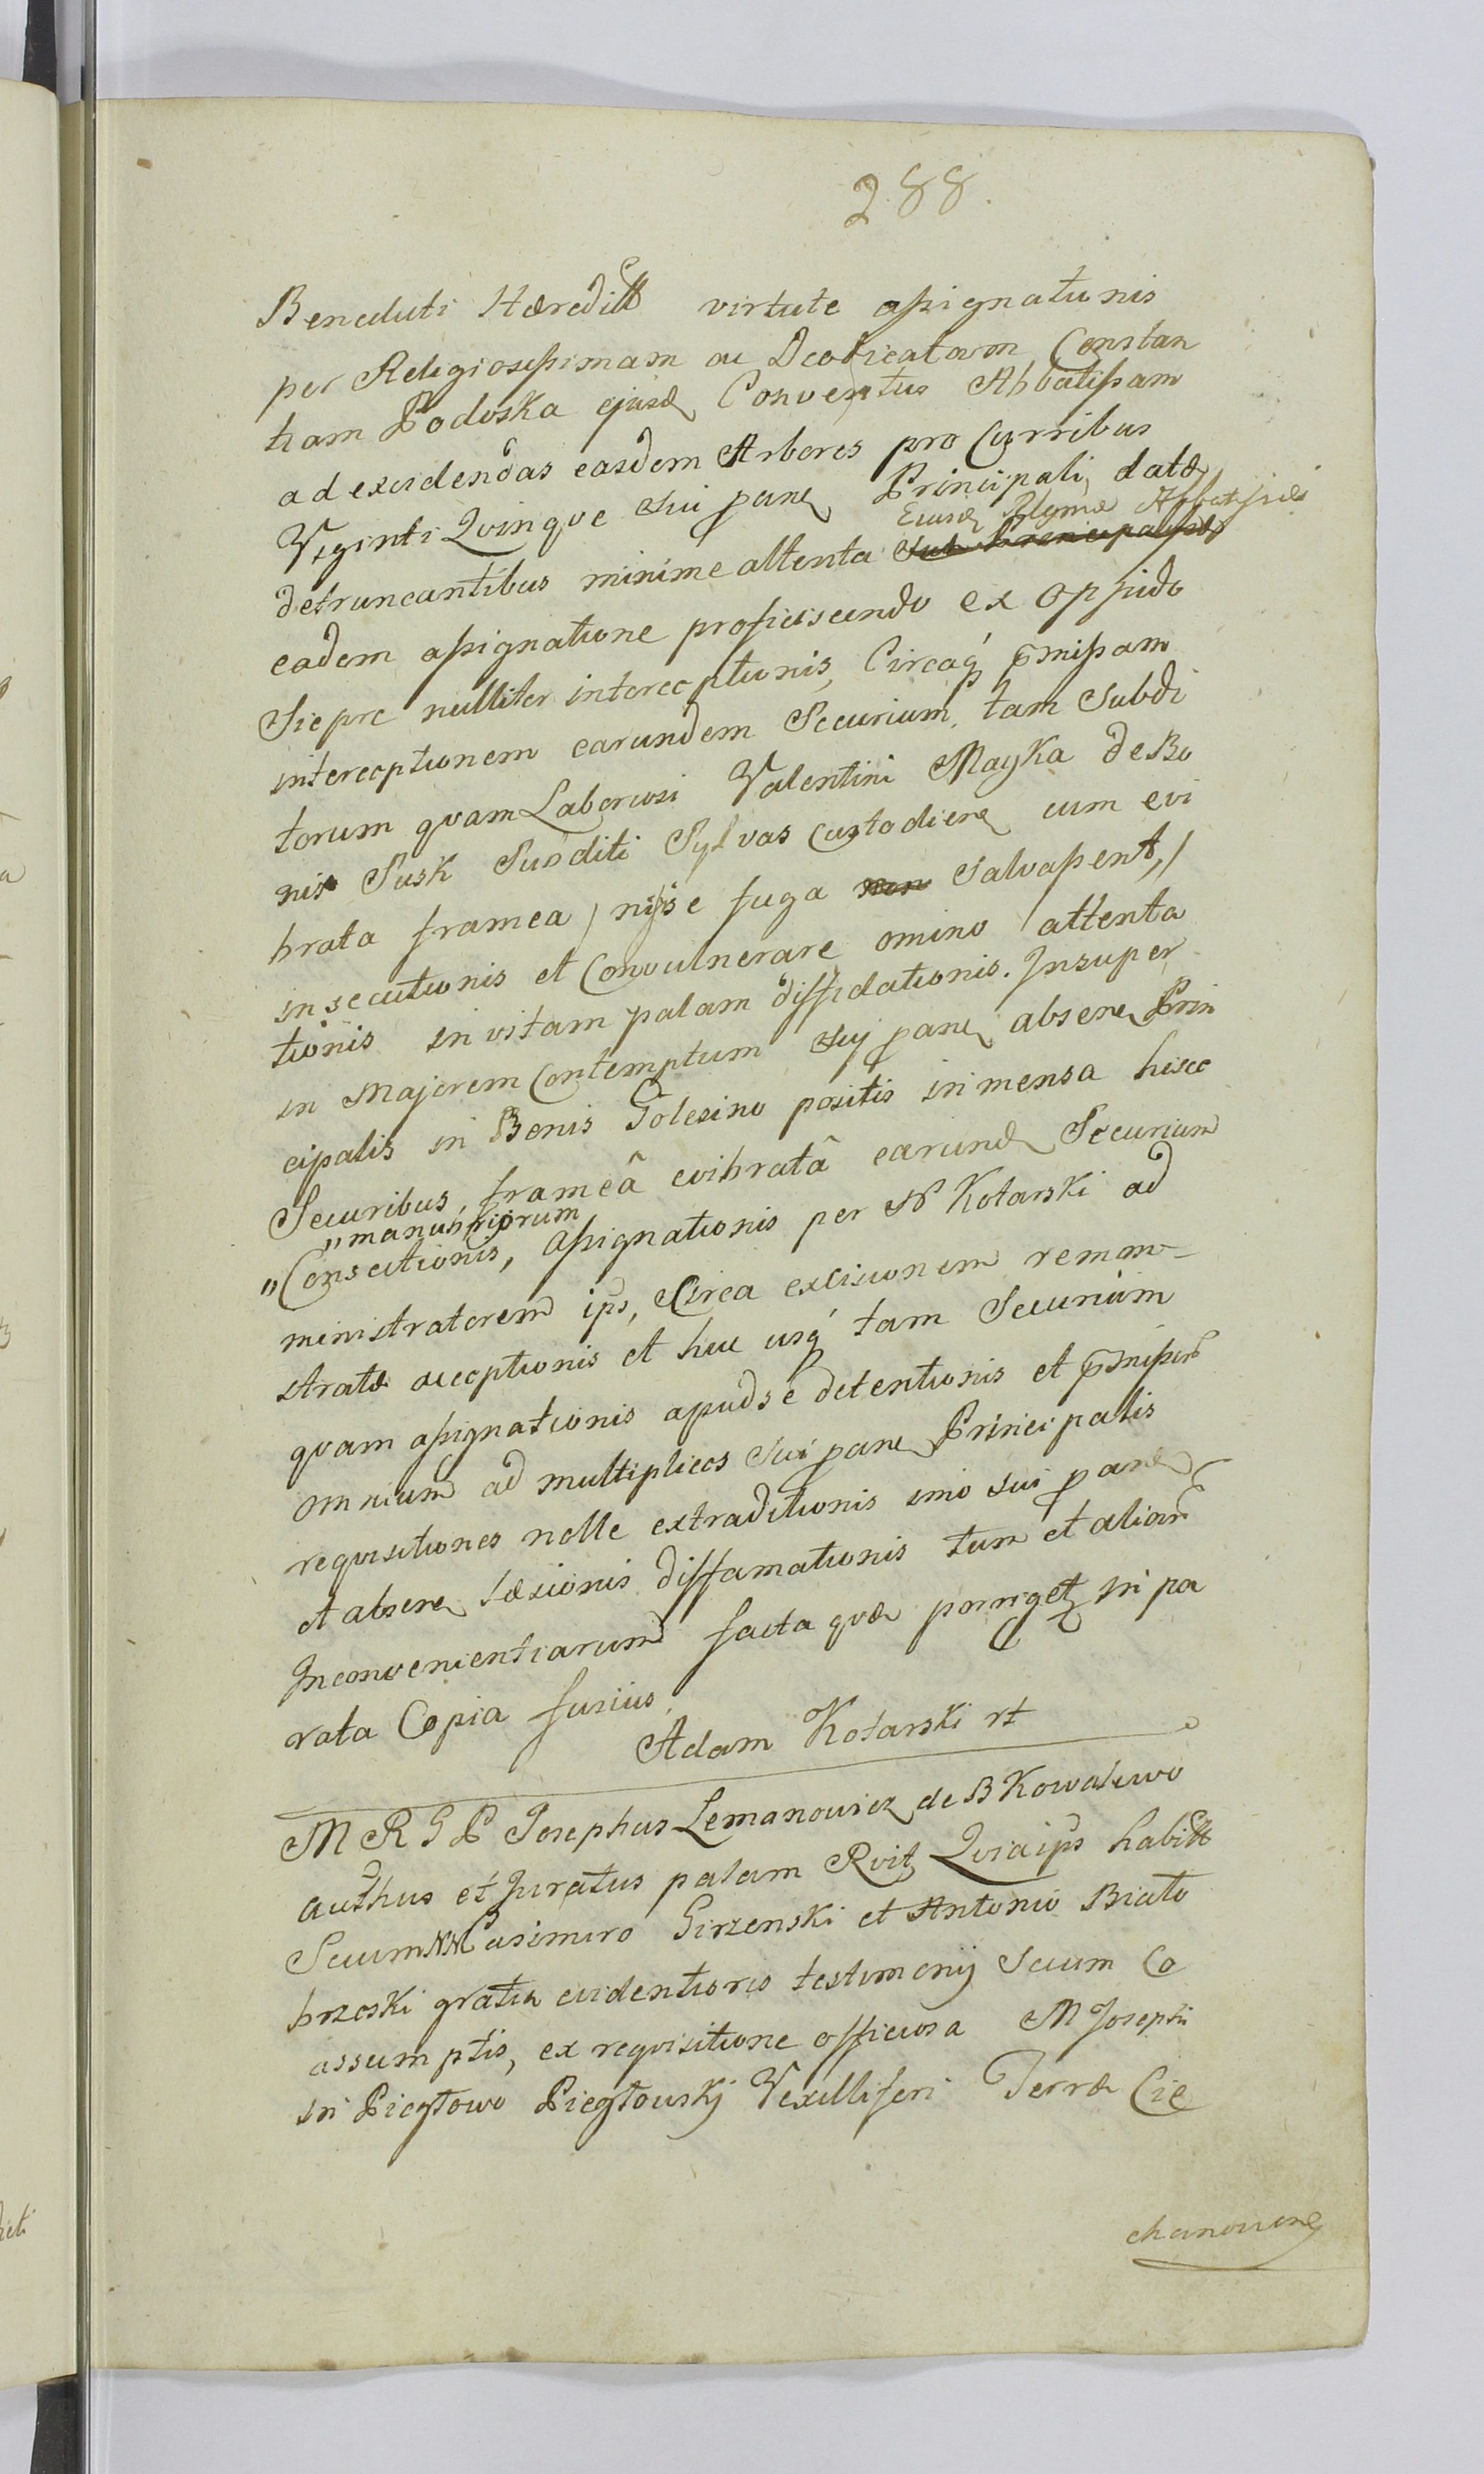 288.
Beneduti Hæreditt virtute assignationis
per Religiosissimam ac Deodicatam Constan
tiam Podoska ejusd Conventus Abbatissam
ad excidendas easdem Arbores pro Curribus
Viginti Qvinqve sui pane Principali datæ,
Eiusd Rlgmæ Abbatissæ
detruncantibus minime attenta
eadem assignatione proficiscendo ex Oppido
Siepre nulliter interceptionis, Circaq pmissam
interceptionem earundem Securium, tam Subdi
torum qvam Laboriosi Valentini Mayka de Bo
nis Pusk Subditi Sylvas Custodiene cum evi
brata framea / ni se fuga non Salvassent, /
insecutionis et Convulnerare omino attenta
tionis in vitam palam diffidationis. Insuper
in Majorem Contemptum Suj pane absene Prin
cipalis in Bonis Golesino positis in mensa hisce
Securibus, frameâ evibratâ earund Securium
"manubriorum
"Consectionis, Assignationis per N Kotarski ad
ministratorem ips, Circa excisionem remon-
stratæ acceptionis et huc usq tam Securium
qvam assignationis apud sè detentionis et pmissor
omnium ad multiplices Sui pane Principalis
reqvisitiones nolle extraditionis imo sui pane
et absene læsionis diffamationis tum et aliar
Inconvenientiarum facta qvæ porriget in pa
rata Copia fusius.
Adam Kotarski rt
M R G P Josephus Lemanowicz de B Kowalewo
authus et Juratus palam Rvit Qvia ips habitt
Secum NN Casimiro Girzenski et Antonio Biato
brzeski gratia evidentioris testimonij Secum Co
assumptis, ex reqvisitione officiosa M Josephi
in Piegtowo Piegtowskj Vexilliferi Terræ Cie
chanoviene